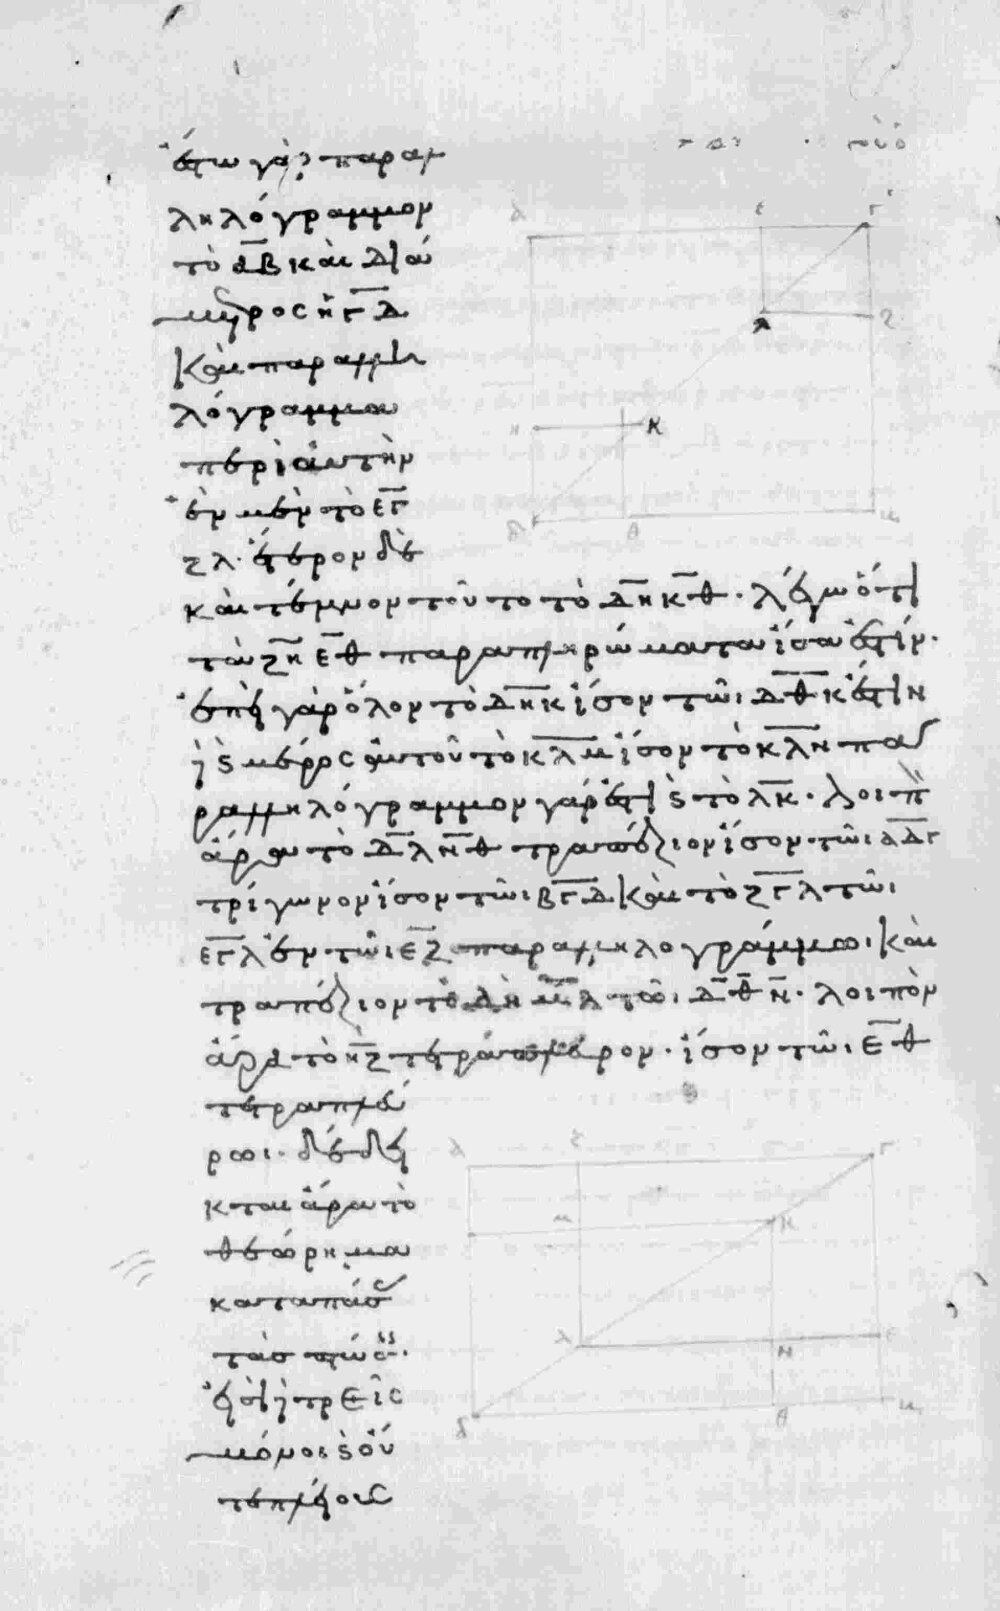 ἔστω γὰρ παραλ
ληλόγραμμον
τὸ αβ καὶ διά
μετρος ἡ γδ
καὶ παραλλη
λόγραμμα
περὶ αὐτὴν
ἓν μὲν τὸ εγ
ζλ· ἕτερον δὲ
καὶ τέμνον τοῦτο τὸ δηκθ· λέγω ὅτι
τὰ ζη εθ παραπληρώματα ἴσα ἐστίν·
ἐπεὶ γὰρ ὅλον τὸ δηκ ἴσον τῶι δθκ ἐστὶν
ἧς μέρος αὐτοῦ τὸ κλμ ἴσον τὸ κλν πα
ραλληλόγραμμον γάρ ἐστι τὸ λκ· λοιπ
ἄρα τὸ δλνθ τραπέζιον ἴσον τῶι αδγ
τρίγωνον ἴσον τῶι βγδ καὶ τὸ ζγλ τῶι
εγλ ἐν τῶι εζ παραλληλογράμμωι καὶ
τραπέζιον τὸ δημλ τῶι δθν· λοιπὸν
ἄρα τὸ ηζ τετράπλευρον· ἴσον τῶι εθ
τετραπλεύ
ρωι· δέδει
κται ἄρα τὸ
θεώρημα
κατὰ πάσ
τὰσ πτώσ
ὅτι τρεῖς
μόνοι οὔ
τε πλείους